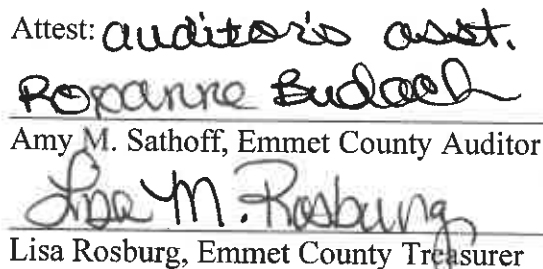 Attest: auditor's asst.
Roxanne Budach
Amy M. Sathoff, Emmet County Auditor
Lisa M. Rosburg
Lisa Rosburg, Emmet County Treasurer